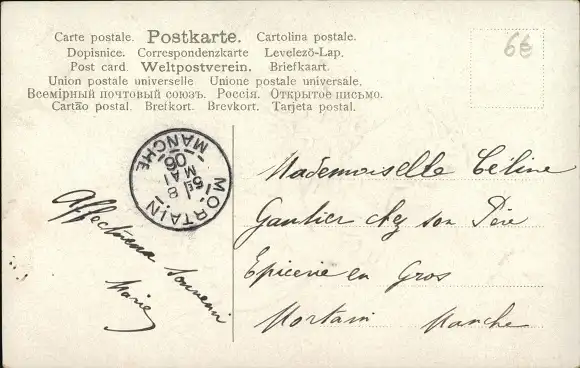 Carte postale. Postkarte. Cartolina postale.
Dopisnice. Correspondenzkarte Levelező-Lap.
Post card. Weltpostverein. Briefkaart.
Union postale universelle Unione postale universale.
Всемірный почтовый союзъ. Россія. Открытое письмо.
Cartão postal. Brefkort. Brevkort. Tarjeta postal.
6€
MORTAIN
MANCHE
8
MAI
06
Mademoiselle Céline
Gautier chez son Père
Epicerie en Gros
Mortain Manche
Affectueux Souvenir
Marie